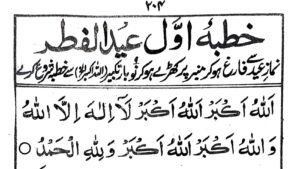 ۲۰۴
خطبۂ اوّل عیدُ الفطر
نماز عید سے فارغ ہو کر منبر پر کھڑے ہو کر نُو بار تکبیر (اللہ اکبر) سے خطبہ شروع کرے
اَللهُ اَكْبَرُ اَللهُ اَكْبَرُ لَآ اِلٰهَ اِلَّا اللهُ
وَاللهُ اَكْبَرُ اَللهُ اَكْبَرُ وَلِلّٰهِ الْحَمْدُ ○